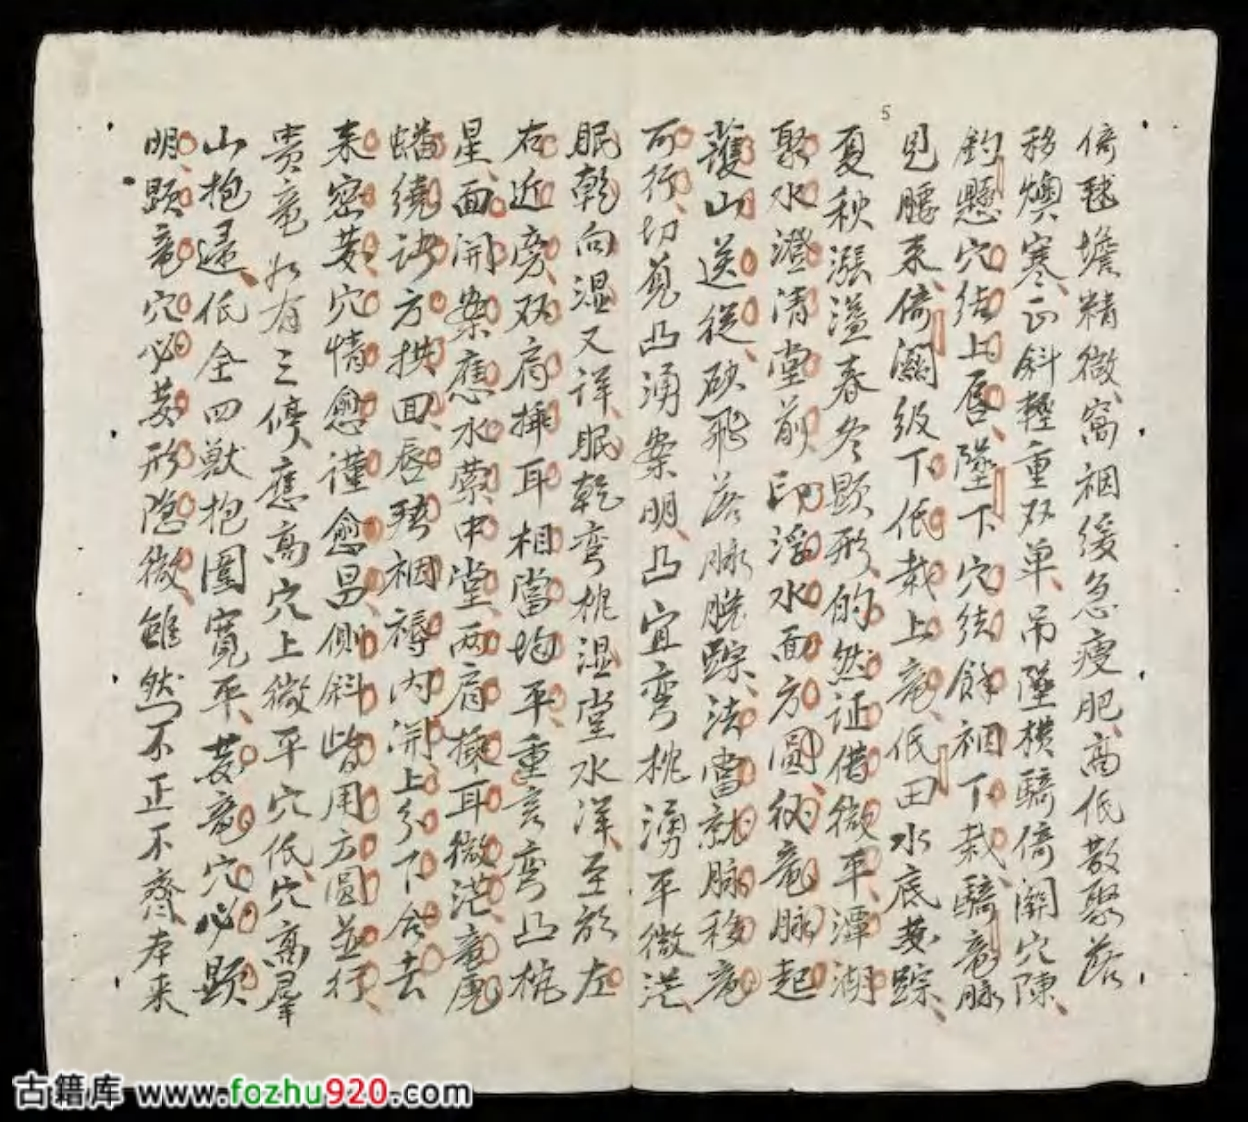 倚毬簷精微窩裀緩急瘦肥高低散聚落
移燠寒正斜輕重双单吊墜横騎倚關穴陳
釣懸穴结上唇墜下穴结餘裀下栽騎竜脉
見腰来倚關级下低栽上竜低田水底葬踪
夏秋漲溢春冬顕形的然证借微平潭湖
聚水澄清堂前印浮水面方圓衲竜脉起
護山送従砍飛落脉踪法當就脉移竜
可行切覓凸湧案明凸宜弯桃湧平微茫
眠乾向湿又详眠乾弯桃湿堂水洋至於左
右近旁双肩揷耳相當均平重言弯凸桃
星面開案應水蒙中堂两肩揷耳微茫竜虎
蟠繞訣方拱回唇裀褥内開上分下合去
来密葬穴情愈谨愈昌側斜皆用方圓並行
贵竜必有三停應高穴上微平穴低穴高羣
山抱還低全四獣抱圍寛平葬竜穴必顕
明顕竜穴必葬形隐微雖然不正不齊本来
5
古籍库 www.fozhu920.com